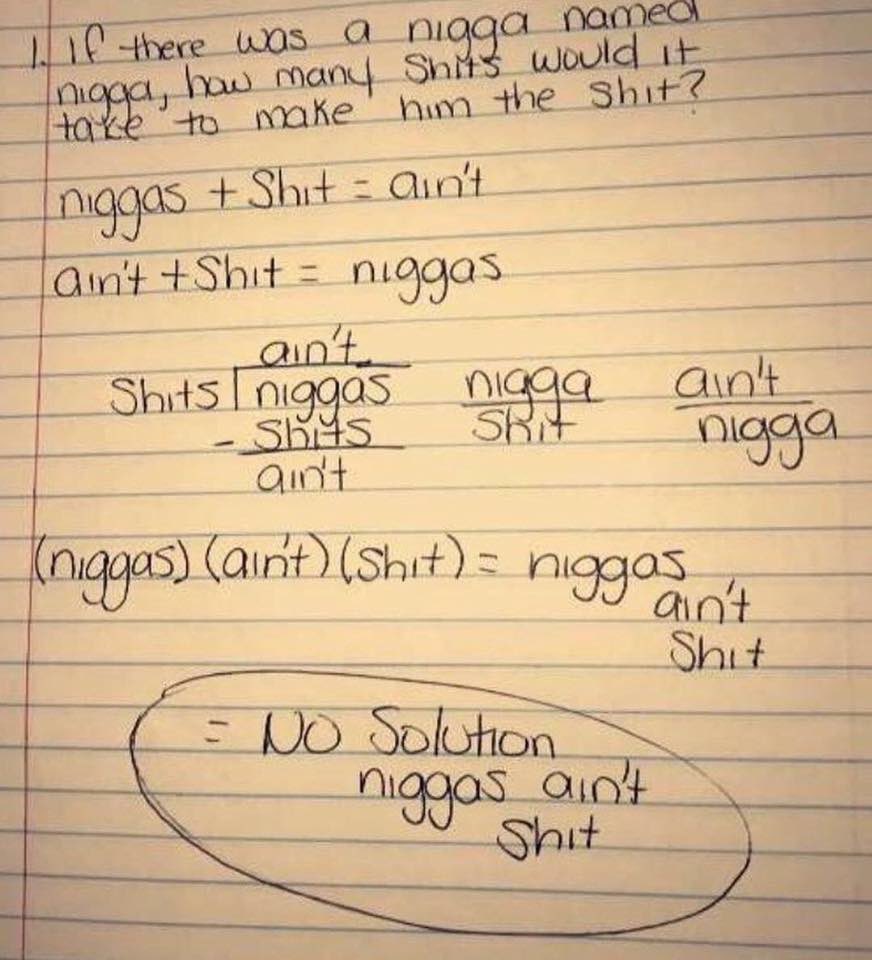 1. If there was a nigga named
nigga, how many Shits would it
take to make him the shit?
niggas + Shit = ain't
ain't + Shit = niggas
ain't
Shits niggas nigga ain't
- Shits Shit nigga
ain't
(niggas) (ain't) (Shit) = niggas
ain't
Shit
= NO Solution
niggas ain't
Shit